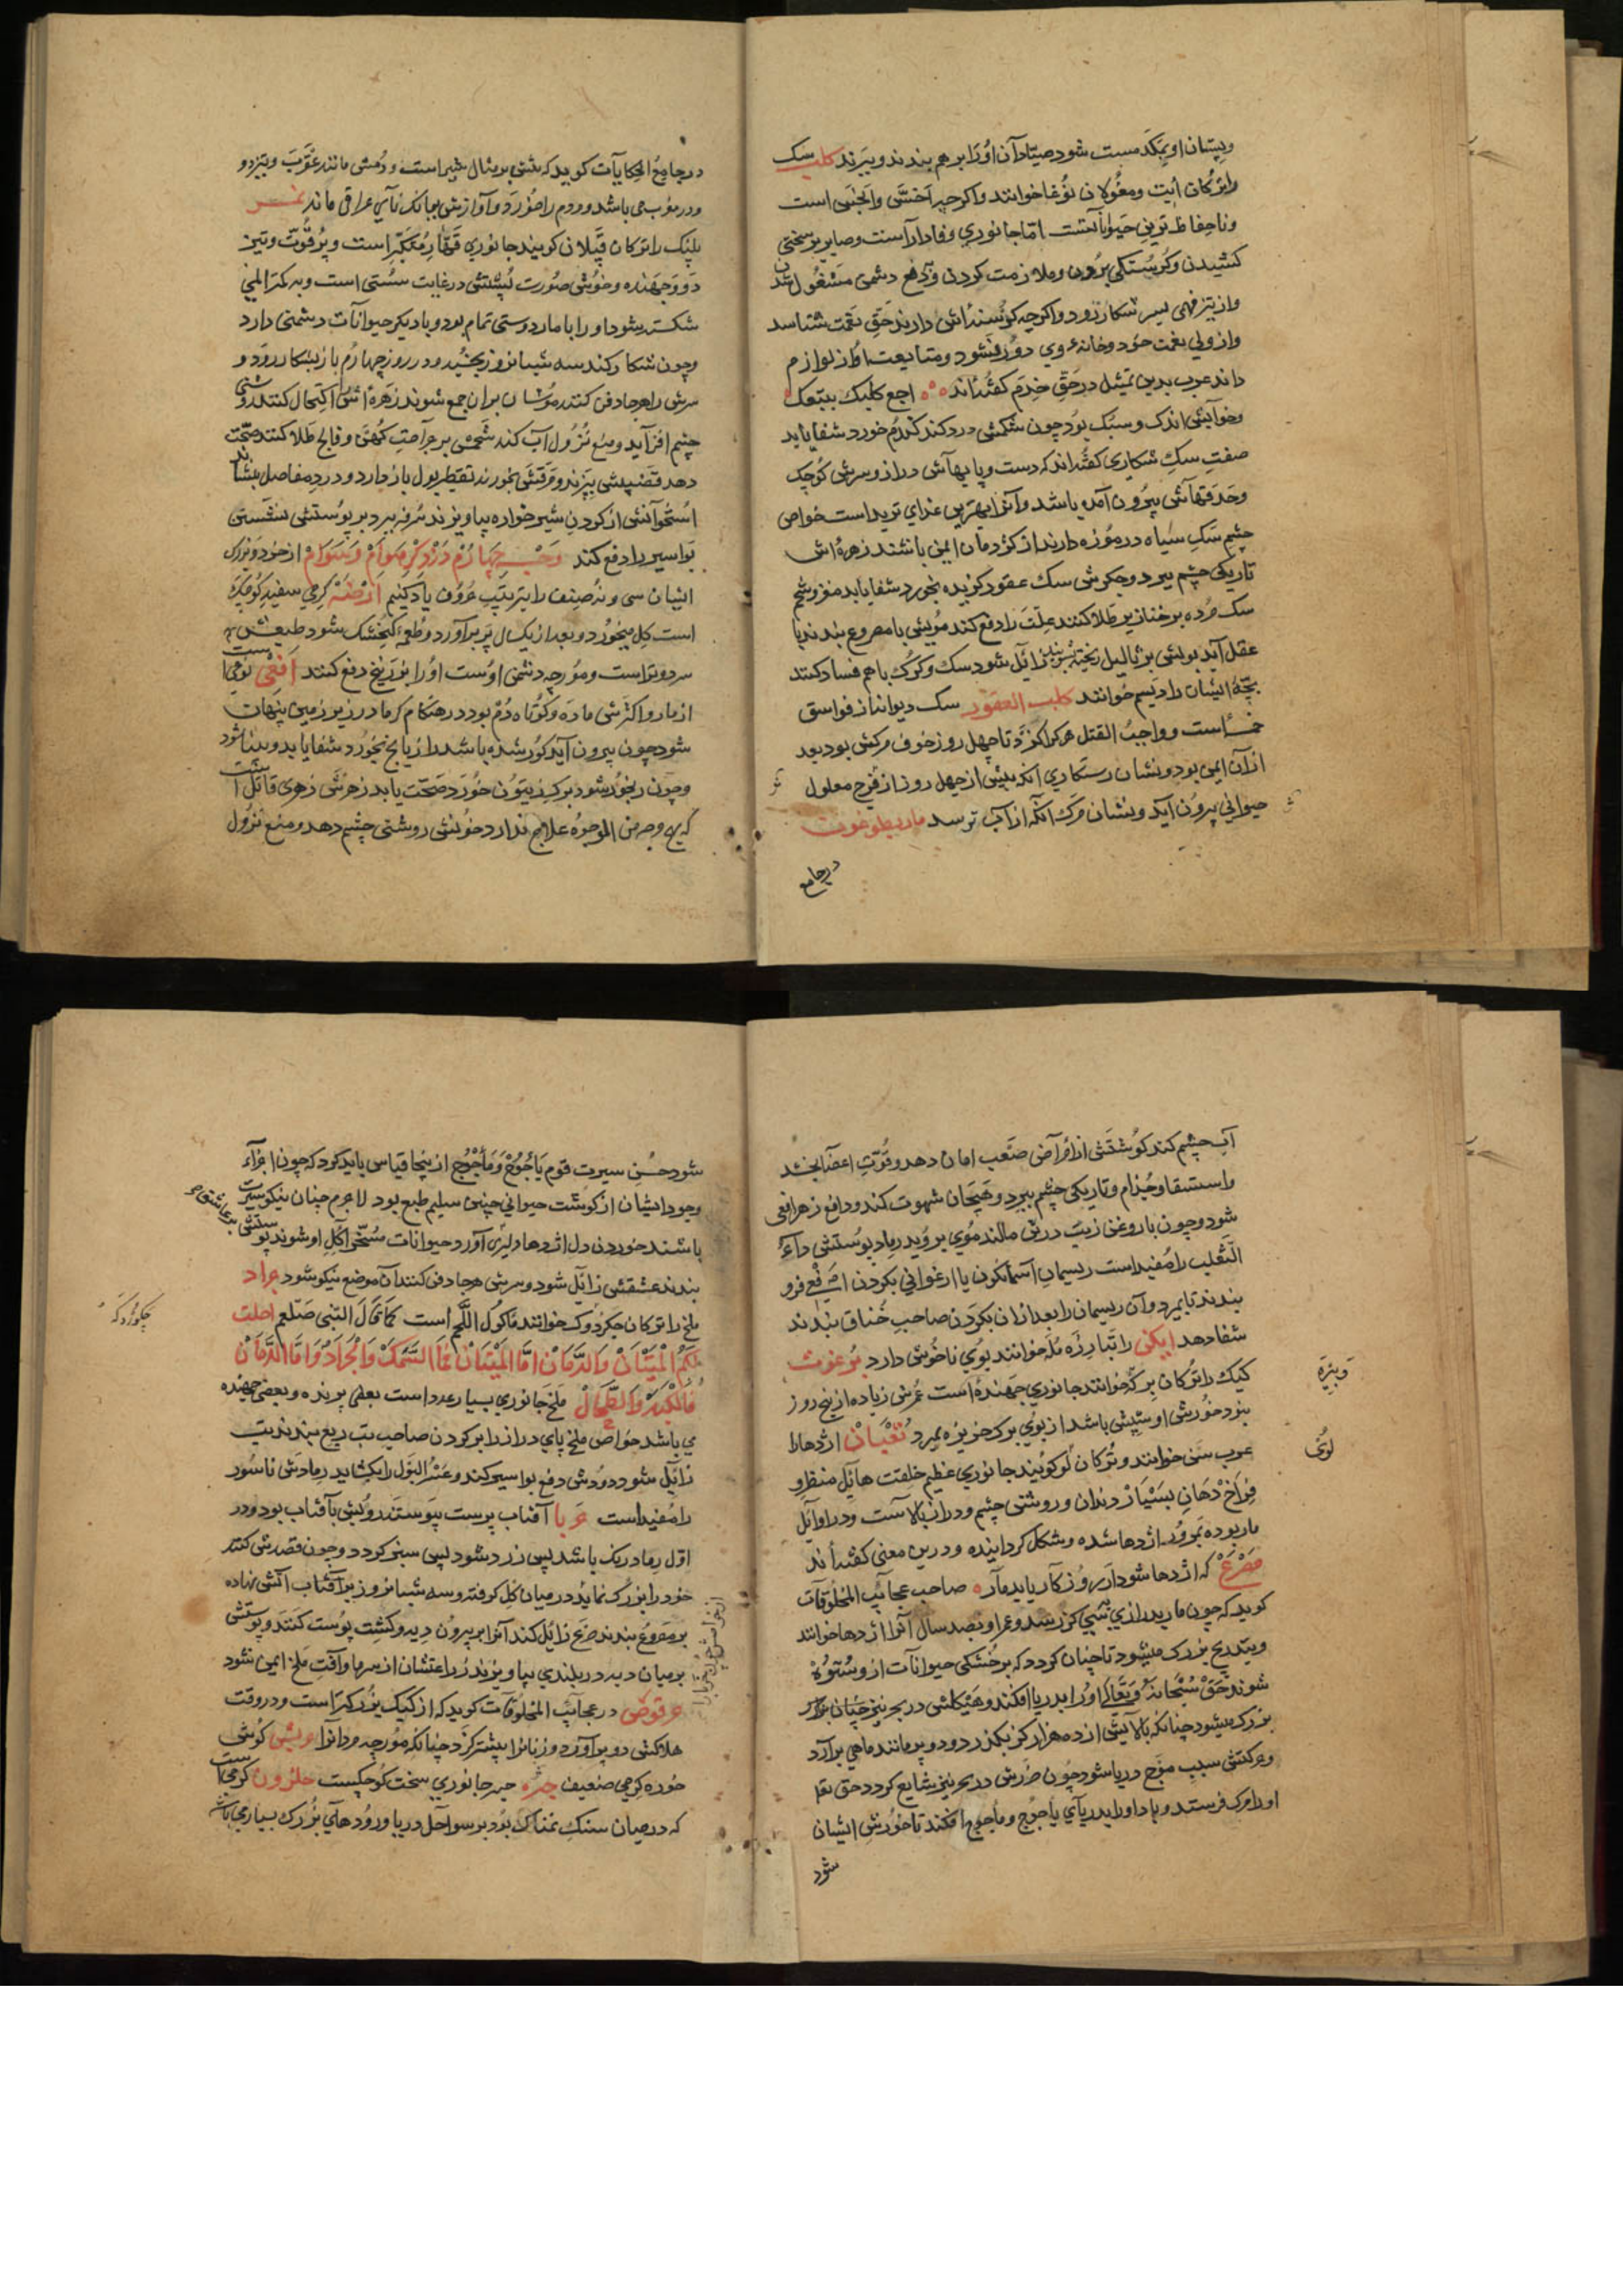 وپستان او بمکد مست شود صیادان اورا بر هم بندند و ببرند کلب سک
را ترکان ایت ومغولان نوغا خوانند واکرچه اخسّ وانجس است
ونا حفاظ ترین حیواناتست امّا جانوری وفادار است وصابر بر سختی
کشیدن وکرسنکی بردن وملازمت کردن ودفع دشمن مشغول شدن
واز تیز فهمی بسر شکار زود رود واکرچه کرسنه اش دارند حق نعمت شناسد
واز ولی نعمت خود وخانهٔ وی دور نشود ومتابعت اورا از لوازم
داند عرب بدین تمثیل در حق خدم کفته اند اجع کلبک یتبعک
وخوابش اندک وسبک بود چون شکمش درد کند کندم خورد شفا یابد
صفت سک شکاری کفته اند که دست وپایهاش دراز وسرش کوچک
وحدقتهاش بیرون آمده باشد وآنرا بهترین غذای ترید است خواص
چشم سک سیاه در موزه دارند از کژدمان ایمن باشند زهره اش
تاریکی چشم ببرد وجکرش سک عقور کزیده بخورد شفا یابد مغز وشحم
سک مرده بر خنازیر طلا کنند علت را دفع کند مویش با مصروع بندند با
عقل آید بولش بر ثالیل ریخته زایل شود سک وکرک با هم فساد کنند
بچهٔ ایشان را دیسم خوانند کلب العقور سک دیوانه از فواسق
خمسه است وواجب القتل هر کرا کزد تا چهل روز خوف مرکش بود بعد
از آن ایمن بود ونشان رستکاری آنکه پیش از چهل روز از فرج معلول
حیوانی بیرون آید ونشان مرک آنکه از آب ترسد ماریطوغون
در جامع
در جامع الحکایات کوید که تنش بر مثال شیر است ودمش مانند عقرب وتیزدو
ودر مغرب می باشد ومردم را خورد وآوازش ببانک نای عراقی ماند نمر
پلنک را ترکان قپلان کویند جانوری قهار متکبر است وپر قوت وتیز
دو وجهنده وخوش صورت پشتش در غایت سستی است وبه کمتر المی
شکسته شود اورا با مار دوستی تمام بود وبا دیکر حیوانات دشمنی دارد
وچون شکار کند سه شبانروز بخسبد ودر روز چهارم باز بشکار رود و
سرش را هرجا دفن کنند موشان بران جمع شوند زهره اش اکتحال کنند روشنی
چشم افزاید ومنع نزول آب کند شحمش بر جراحت کهن وفالج طلا کنند صحت
دهد قضیبش بپزند ومرقتش بخورند تقطیر بول باز دارد ودرد مفاصل بنشاند
استخوانش از کردن شیر خواره بیاویزند سرفه ببرد بر پوستش نشستن
بواسیر را دفع کند وجه چهارم در ذکر هوام وسوام از خورد وبزرک
ایشان سی ونه صنف را بترتیب حروف یاد کنیم ارضه کرمی سفید کوچک
است کل میخورد وبعد از یک سال پر بر آورد وطعمهٔ کنجشک شود طبعش
سرد وتر است ومورچه دشمن اوست اورا بزرنیخ دفع کنند افعی نوعی است
از مار واکثرش ماده وکوتاه دم بود در هنکام کرما در زیر زمین پنهان
شود چون بیرون آید کور شده باشد از یانج بخورد شفا یابد وبینا شود
وچون رنجور شود برک زیتون خورد صحت یابد زهرش زهری قاتل است
که بهیچ وجه من الوجوه علاج ندارد خونش روشنی چشم دهد ومنع نزول
آب چشم کند کوشتش از امراض صعب امان دهد وقوت اعضا بخشد
واستسقا وجذام وتاریکی چشم ببرد وهیجان شهوت کند ودافع زهر افعی
شود وچون با روغن زیت درش مالند موی بروید رماد پوستش داء
الثعلب را مفید است ریسمان آسمانکون یا ارغوانی بکردن افعی فرو
بندند تا بمیرد وآن ریسمان را بعد ازان بکردن صاحب خناق بندند
شفا دهد ایکی را بتبارزه مله خوانند بوی ناخوش دارد برغوث
کیک را ترکان برکه خوانند جانوری جهنده است عمرش زیاده از پنج روز
نبود خورش او سبش باشد از بوی برک خرنوزه بمیرد ثعبان اژدها را
عرب سن خوانند وترکان لو کویند جانوری عظیم خلقت هایل منظر و
فراخ دهان بسیار دندان وروشن چشم ودراز بالاست ودر اوایل
مار بوده بمرور اژدها شده وشکل کردانیده ودرین معنی کفته اند
مصرع که اژدها شود ار روزکار یابد مار صاحب عجایب المخلوقات
کوید که چون مار بدرازی بسی کز رسد وعمر او بصد سال آنرا اژدها خوانند
وبتدریج بزرک میشود تا چنان کردد که بر خشکی حیوانات از وستوه
شوند حق سبحانه وتعالی اورا بدریا افکند وهیکلش در بحر نیز چنان بزرکتر
بزرک میشود چنانکه بالایش از ده هزار کز بکذرد ودو پر مانند ماهی بر آرد
وحرکتش سبب موج دریا شود چون ضررش در بحر نیز شایع کردد حق تعا
اورا مرک فرستد وباد اورا بدریای یاجوج وماجوج افکند تا خورش ایشان
شود
وبیزه
لوی
شود حسن سیرت قوم یاجوج وماجوج از ینجا قیاس باید کرد که چون اجزاء
وجود ایشان از کوشت حیوانی چنین سلیم طبع بود لاجرم چنان نیکو سیرت
باشند خوردن دل اژدها دلیری آورد وحیوانات مسخر آکل او شوند پوستش بر عاشق
بندند عشقش زایل شود وسرش هرجا دفن کنند آن موضع نیکو شود جراد
ملخ را ترکان جکرکه خوانند ماکول اللحم است کما قال النبی صلعم احلت
لکم المیتتان والدمان اما المیتتان فالسمک والجراد واما الدمان
فالکبد والطحال ملخ جانوری بسیار عدد است بعضی پرنده وبعضی جهنده
می باشد خواص ملخ پای دراز را بر کردن صاحب تب ربع بندند تب
زایل شود ودودش دفع بواسیر کند وعسر البول را بکشاید رمادش ناسور
را مفید است حربا آفتاب پرست پیوسته رویش بآفتاب بود ودر
اول رمادرنک باشد پس زرد شود پس سبز کردد وچون قصدش کنند
خود را بزرک نماید در میان کل کرفته وسه شبانروز بر آفتاب آتش نهاده
بر مصروع بندند صرع زایل کند آنرا بر بیرون دیه وکشت پوست کنند وپوستش
بر میان دیه در بلندی بیاویزند زراعتشان از سرما وآفت ملخ ایمن شود
حرقوص در عجایب المخلوقات کوید که از کیک بزرکتر است ودر وقت
هلاکش دو پر آورد وزنانرا بیشتر کزد چنانکه مورچه مردانرا حریش کوش
خوره کرمی ضعیف جره جبر جانوری سخت کوچکست حلزون کرمی است
که در میان سنک نمناک بود بر سواحل دریا ورودهای بزرک بسیار می باشد
چکورکه